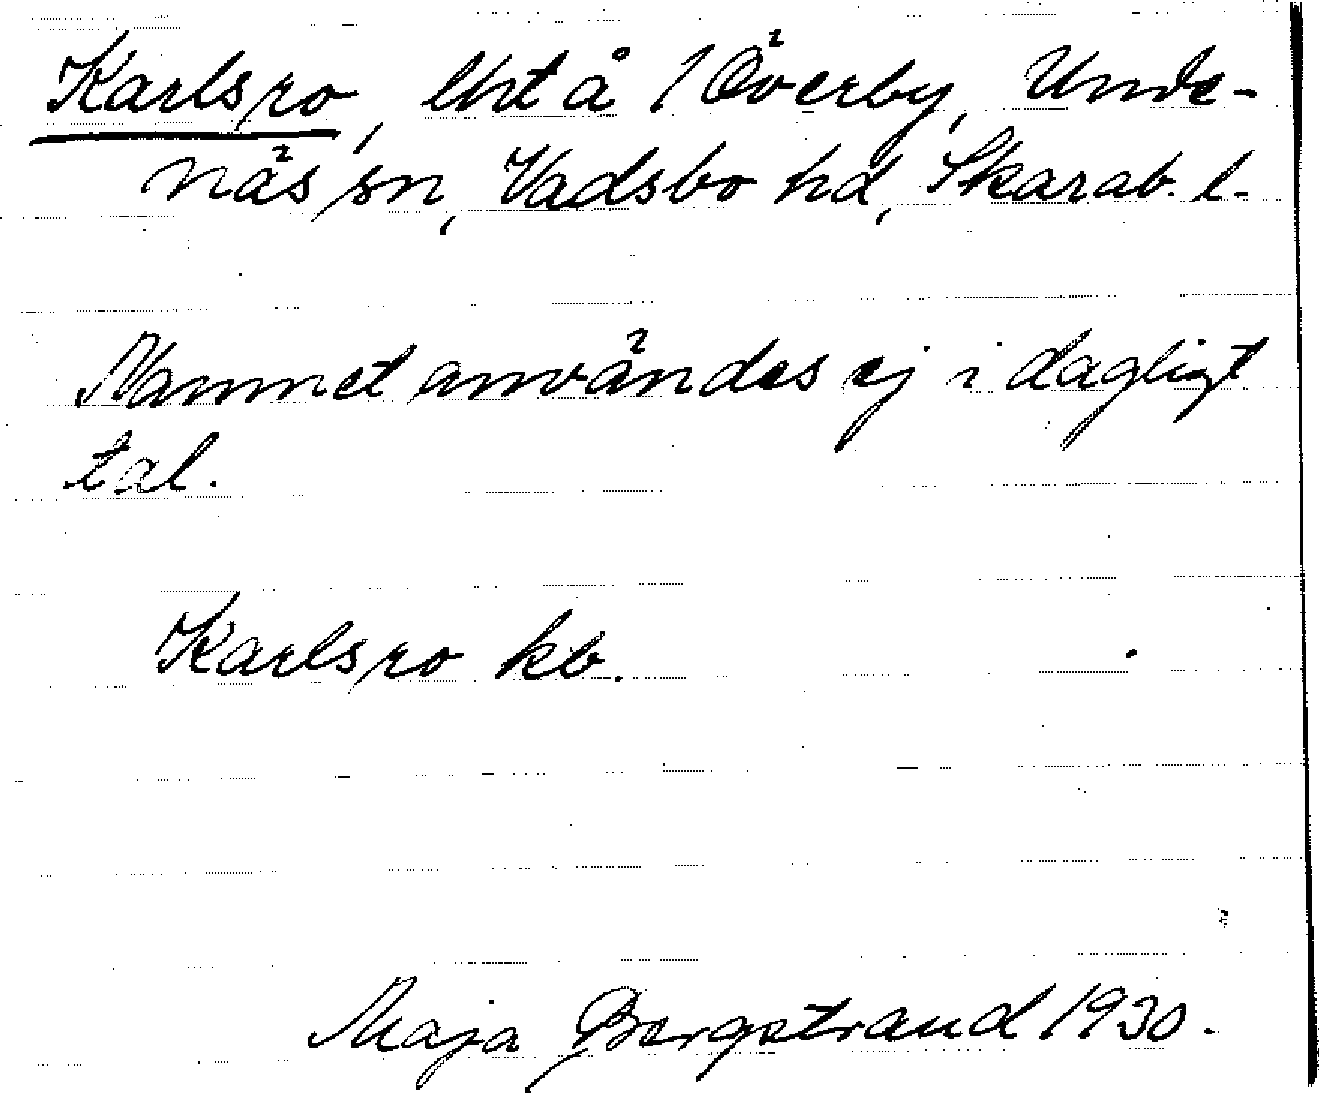 Karlsro, lht å 1 Överby, Unde-
näs sn, Vadsbo hd, Skarab. l.
Namnet användes ej i dagligt
tal.
Karlsro kb.
Maja Bergstrand 1930.